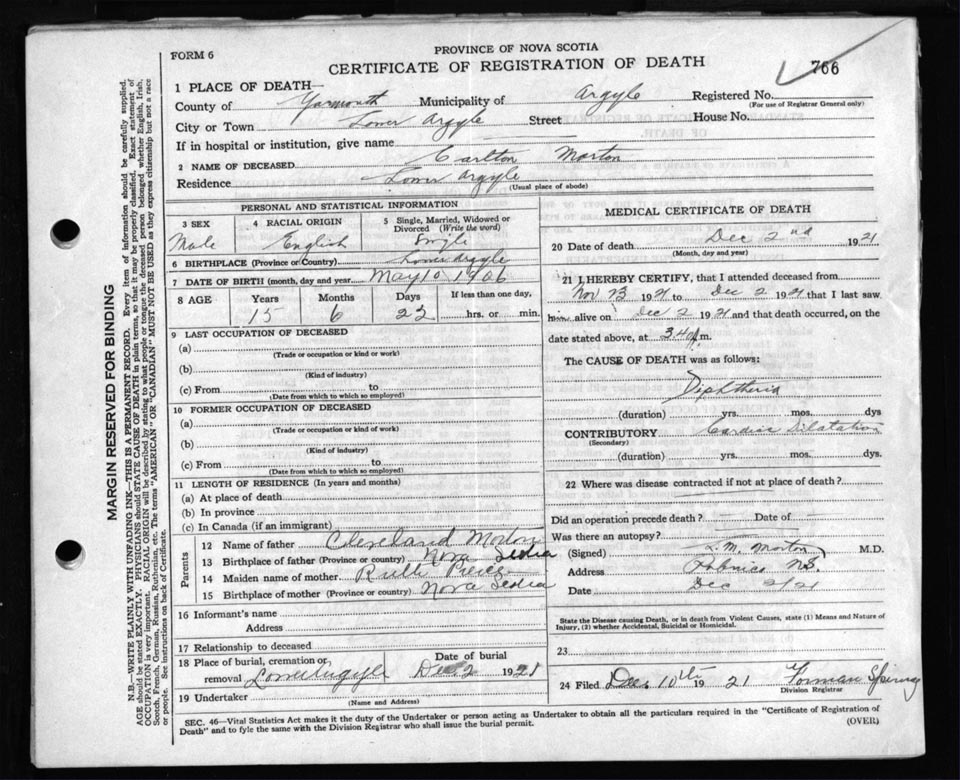 PROVINCE OF NOVA SCOTIA
FORM 6
CERTIFICATE OF REGISTRATION OF DEATH
766
1 PLACE OF DEATH—
County of Yarmouth Municipality of Argyle Registered No.
(For use of Registrar General only)
City or Town Lower Argyle Street House No.
If in hospital or institution, give name
2 NAME OF DECEASED Carlton Morton
Residence Lower Argyle
(Usual place of abode)
PERSONAL AND STATISTICAL INFORMATION
3 SEX 4 RACIAL ORIGIN 5 Single, Married, Widowed or Divorced (Write the word)
Male English Single
6 BIRTHPLACE (Province or Country) Lower Argyle
7 DATE OF BIRTH (month, day and year) May 10 1906
8 AGE Years Months Days If less than one day,
15 6 22 hrs. or min.
9 LAST OCCUPATION OF DECEASED
(a)
(Trade or occupation or kind or work)
(b)
(Kind of industry)
(c) From to
(Date from which to which so employed)
10 FORMER OCCUPATION OF DECEASED
(a)
(Trade or occupation or kind of work)
(b)
(Kind of industry)
(c) From to
(Date from which to which so employed)
11 LENGTH OF RESIDENCE (In years and months)
(a) At place of death
(b) In province
(c) In Canada (if an immigrant)
Parents
12 Name of father Cleveland Morton
13 Birthplace of father (Province or country) Nova Scotia
14 Maiden name of mother Ruth
15 Birthplace of mother (Province or country) Nova Scotia
16 Informant's name
Address
17 Relationship to deceased
18 Place of burial, cremation or Date of burial
removal Lower Argyle Dec 2 1921
19 Undertaker
(Name and Address)
MEDICAL CERTIFICATE OF DEATH
20 Date of death Dec 2nd 1921
(Month, day and year)
21 I HEREBY CERTIFY, that I attended deceased from
Nov 23 1921 to Dec 2 1921 that I last saw
him alive on Dec 2 1921 and that death occurred, on
date stated above, at m.
The CAUSE OF DEATH was as follows:
Diphtheria
(duration) yrs. mos. dys
CONTRIBUTORY Cardiac Dilatation
(Secondary)
(duration) yrs. mos. dys.
22 Where was disease contracted if not at place of death?
Did an operation precede death? Date of
Was there an autopsy?
(Signed) L. M. Morton M.D.
Address Pubnico N.S.
Date Dec 2/21
State the Disease causing Death, or in death from Violent Causes, state (1) Means and Nature of
Injury, (2) whether Accidental, Suicidal or Homicidal.
23
24 Filed Dec 10th 1921 Forman
Division Registrar
SEC. 46—Vital Statistics Act makes it the duty of the Undertaker or person acting as Undertaker to obtain all the particulars required in the "Certificate of Registration of
Death" and to fyle the same with the Division Registrar who shall issue the burial permit. (OVER)
MARGIN RESERVED FOR BINDING
N.B.—WRITE PLAINLY WITH UNFADING INK—THIS IS A PERMANENT RECORD. Every item of information should be carefully supplied.
AGE should be stated EXACTLY. PHYSICIANS should STATE CAUSE OF DEATH in plain terms, so that it may be properly classified. Exact statement of
OCCUPATION is very important. RACIAL ORIGIN will be described by stating to what people or tongue the deceased person belonged whether English, Irish,
Scotch, French, German, Russian, Ruthenian, etc. The terms "AMERICAN" OR "CANADIAN" MUST NOT BE USED as they express citizenship but not a race
or people. See instructions on back of Certificate.